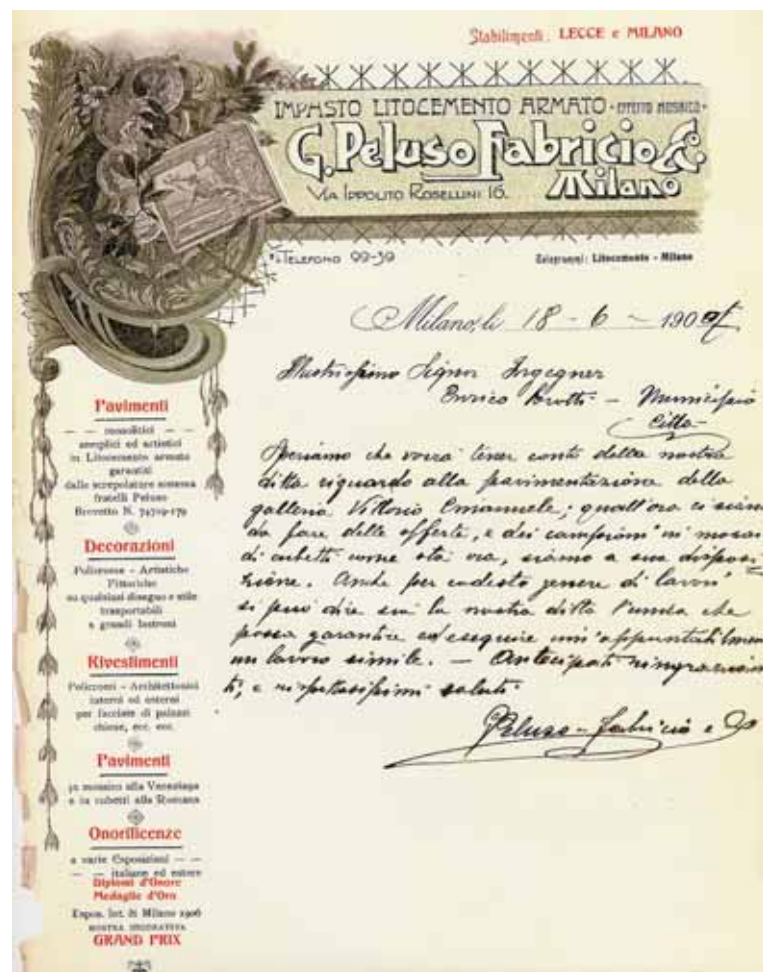 Stabilimenti: LECCE e MILANO
IMPASTO LITOCEMENTO ARMATO · EFFETTO MOSAICO ·
G. Peluso Fabricio & Co.
Milano
VIA IPPOLITO ROSELLINI 16.
TELEFONO 99-39
Telegrammi: Litocemento - Milano
Milano, li 18 - 6 - 1907
Illustrissimo Signor Ingegner
Enrico - Municipio
Città -
Speriamo che vorrà tener conto della nostra
ditta riguardo alla pavimentazione della
galleria Vittorio Emanuele; quall'ora ci siano
da fare delle offerte, e dei campioni in mosai
di cubetti come sta ora, siamo a sua disposi
zione. Anche per codesto genere di lavori
si può dire sia la nostra ditta l'unica che
possa garantire ed eseguire
un lavoro simile. — Antecipati ringraziamen
ti, e rispettosissimi saluti
Peluso - Fabricio e Co
Pavimenti
— — monolitici — —
semplici ed artistici
in Litocemento armato
garantiti
dalle screpolature sistema
fratelli Peluso
Brevetto N. 74709-179
Decorazioni
Policrome - Artistiche
Pittoriche
su qualsiasi disegno e stile
trasportabili
e grandi lastroni
Rivestimenti
Policromi - Architettonici
interni ed esterni
per facciate di palazzi
chiese, ecc. ecc.
Pavimenti
in mosaico alla Veneziana
e in cubetti alla Romana
Onorificenze
a varie Esposizioni — —
— — italiane ed estere
Diplomi d'Onore
Medaglie d'Oro
Espos. Int. di Milano 1906
MOSTRA DECORATIVA
GRAND PRIX